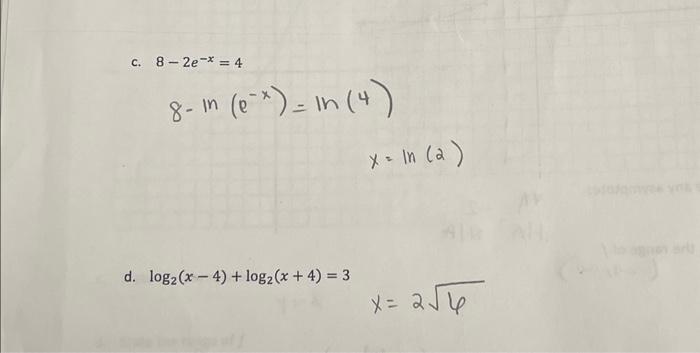 c. 8 − 2e⁻ˣ = 4
8 - ln (e⁻ˣ) = ln (4)
x = ln (2)
d. log₂(x − 4) + log₂(x + 4) = 3
x = 2√6